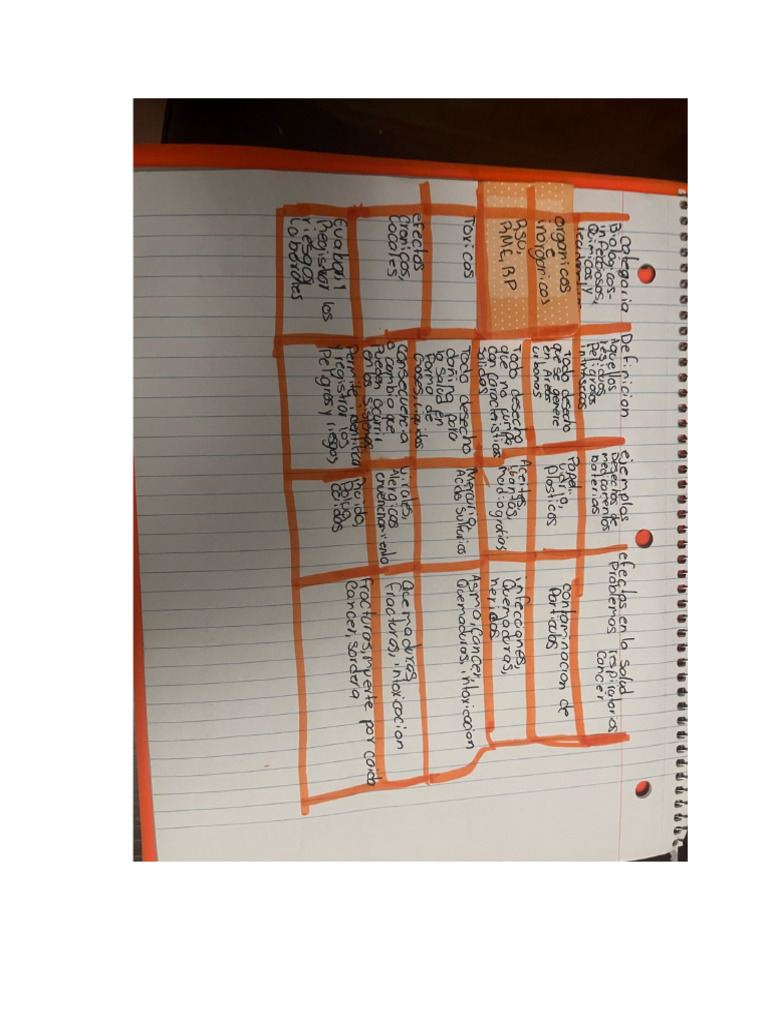 Categoria
Definicion
ejemplos
efectos en la salud
Biologicos-
infecciosos,
Quimicos y
Aquellos
residuos
peligrosos
intrinsicos
Desechos de
medicamentos
baterias
Problemas respiratorios
cancer
organicos
e
inorganicos
Todo desecho
que se genere
en Areas
urbanas
Papel
vidrio,
Plasticos
contaminacion de
Particulas
RSU,
RME, BP
Todo desecho
que no cumpla
con caracteristicas
solidas
Aceites,
llantas,
radiografias
infecciones,
Quemaduras,
heridas
Toxicos
Todo desecho
domina para
la salud en
forma de
Gases, liquidos
Mercurio,
Acido Sulfurico
Asma, cancer,
Quemaduras, intoxicacion
efectos
Cronicos,
Locales
consecuencia
o cambio que
Pueden ocurrir
en los sistemas
virales,
Alergicos
envenenamiento
Quemaduras
fracturas, intoxicacion
Evaluar y
Registrar los
riesgos
Laborales
Permite identificar
y registrar los
Peligros y riesgos
Ruido,
Polvo,
caidas
fracturas, muerte por caida
cancer, sordera